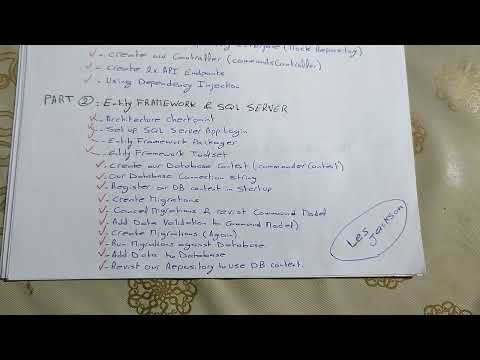 Interface (Mock Repository)
- Create our Controller (commandsController)
- Create 2x API Endpoints
- Using Dependency Injection
PART ②: Entity FRAMEWORK & SQL SERVER
- Architecture Checkpoint
- Set up SQL Server App Login
- Entity Framework Packages
- Entity Framework Toolset
- Create our Database Context (commander Context)
- Our Database Connection String
- Register our DB context in Startup
- Create Migrations
- Migrations & revisit Command Model
- Add Data Validation to Command Model)
- Create Migrations (Again)
- Run Migrations against Database.
- Add Data to Database
- Revisit our Repository to use DB context.
Les Jackson